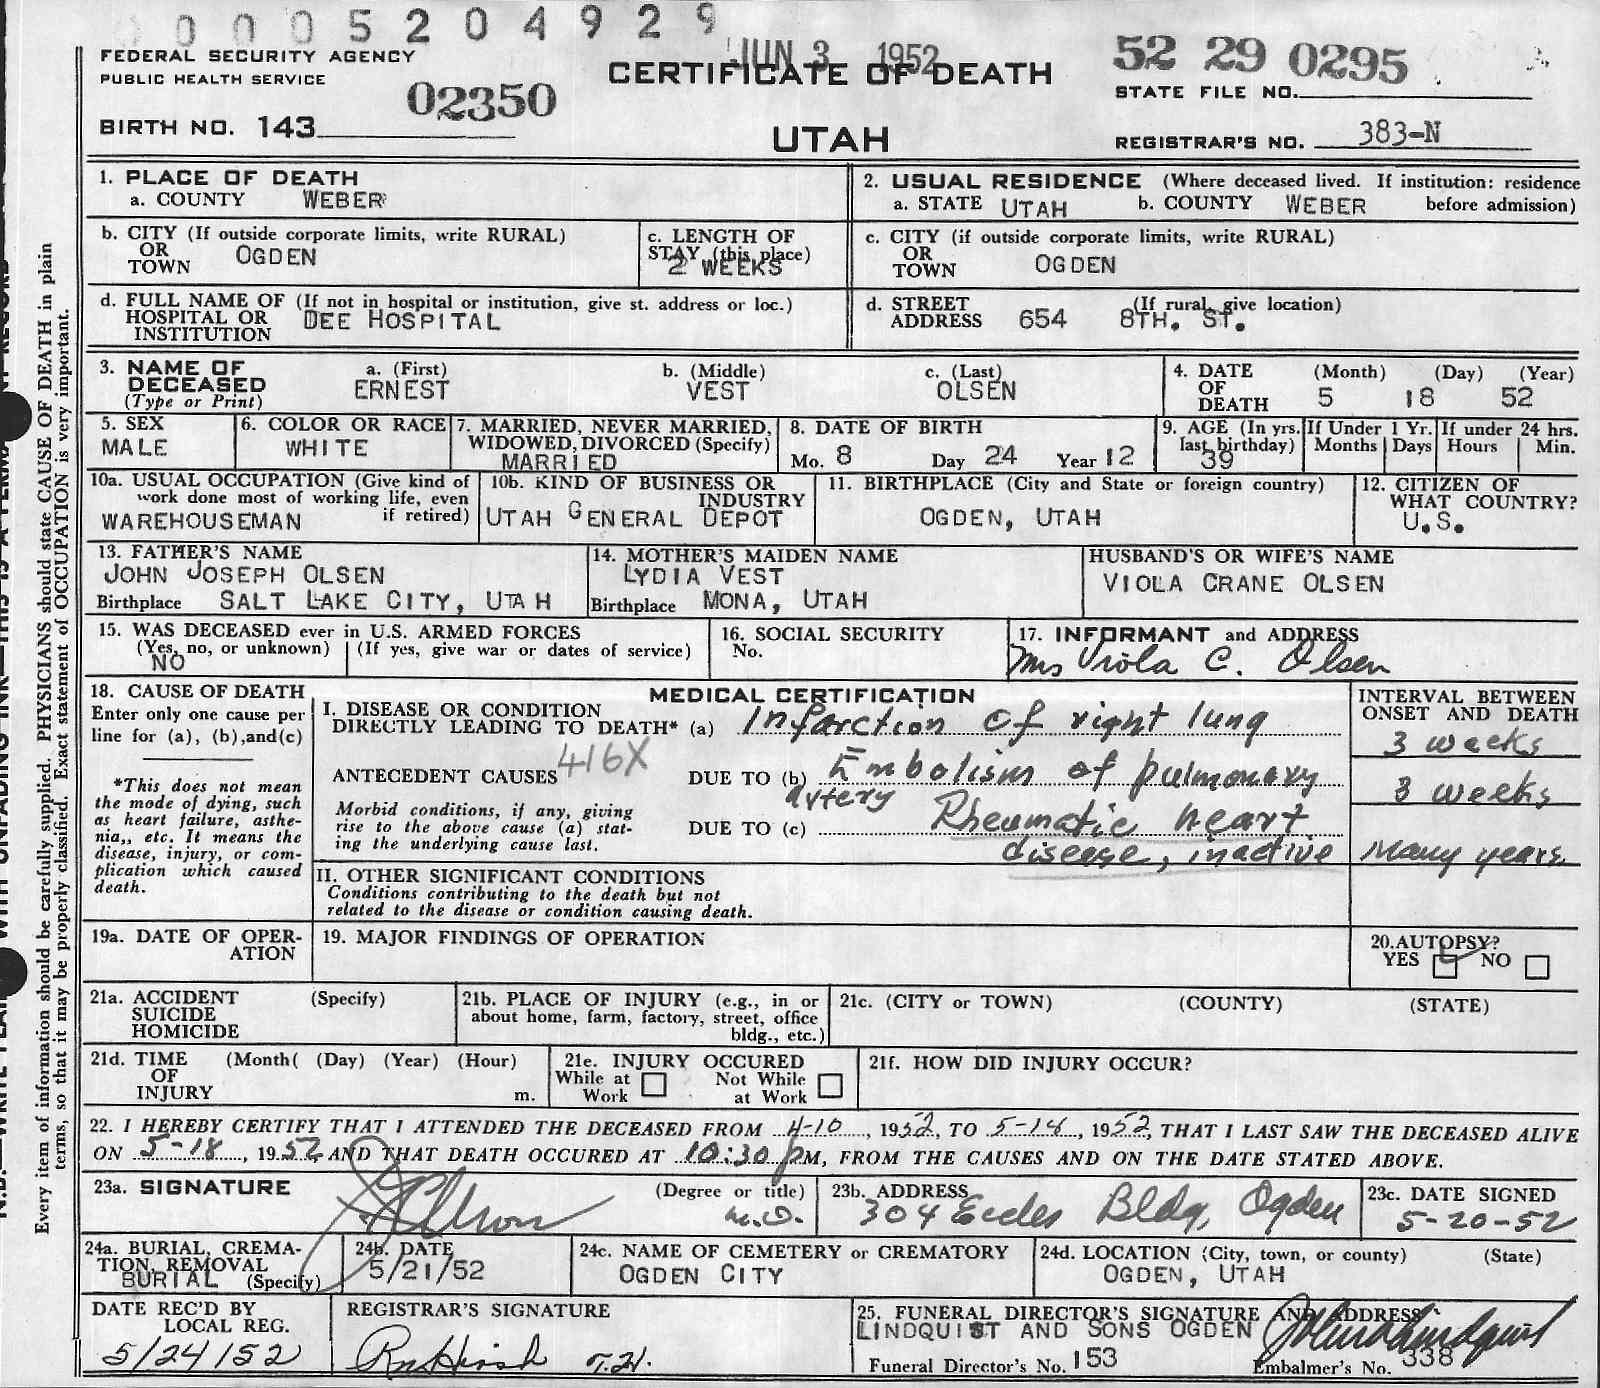 0005204929
FEDERAL SECURITY AGENCY
PUBLIC HEALTH SERVICE
02350
BIRTH NO. 143
JUN 3 1952
CERTIFICATE OF DEATH
UTAH
52 29 0295
STATE FILE NO.
REGISTRAR'S NO. 383-N
1. PLACE OF DEATH
a. COUNTY WEBER
2. USUAL RESIDENCE (Where deceased lived. If institution: residence
a. STATE UTAH b. COUNTY WEBER before admission)
b. CITY (If outside corporate limits, write RURAL)
OR
TOWN OGDEN
c. LENGTH OF
STAY (this place)
2 WEEKS
c. CITY (if outside corporate limits, write RURAL)
OR
TOWN OGDEN
d. FULL NAME OF (If not in hospital or institution, give st. address or loc.)
HOSPITAL OR
INSTITUTION DEE HOSPITAL
d. STREET (If rural, give location)
ADDRESS 654 8TH. ST.
3. NAME OF
DECEASED
(Type or Print)
a. (First)
ERNEST
b. (Middle)
VEST
c. (Last)
OLSEN
4. DATE
OF
DEATH
(Month) (Day) (Year)
5 18 52
5. SEX
MALE
6. COLOR OR RACE
WHITE
7. MARRIED, NEVER MARRIED,
WIDOWED, DIVORCED (Specify)
MARRIED
8. DATE OF BIRTH
Mo. 8 Day 24 Year 12
9. AGE (In yrs.
last birthday)
39
If Under 1 Yr.
Months Days
If under 24 hrs.
Hours Min.
10a. USUAL OCCUPATION (Give kind of
work done most of working life, even
if retired)
WAREHOUSEMAN
10b. KIND OF BUSINESS OR
INDUSTRY
UTAH GENERAL DEPOT
11. BIRTHPLACE (City and State or foreign country)
OGDEN, UTAH
12. CITIZEN OF
WHAT COUNTRY?
U.S.
13. FATHER'S NAME
JOHN JOSEPH OLSEN
Birthplace SALT LAKE CITY, UTAH
14. MOTHER'S MAIDEN NAME
LYDIA VEST
Birthplace MONA, UTAH
HUSBAND'S OR WIFE'S NAME
VIOLA CRANE OLSEN
15. WAS DECEASED ever in U.S. ARMED FORCES
(Yes, no, or unknown) (If yes, give war or dates of service)
NO
16. SOCIAL SECURITY
No.
17. INFORMANT and ADDRESS
Mrs Viola C. Olsen
18. CAUSE OF DEATH
Enter only one cause per
line for (a), (b),and(c)
*This does not mean
the mode of dying, such
as heart failure, asthe-
nia,, etc. It means the
disease, injury, or com-
plication which caused
death.
MEDICAL CERTIFICATION
I. DISEASE OR CONDITION
DIRECTLY LEADING TO DEATH* (a) Infarction of right lung
416X
ANTECEDENT CAUSES DUE TO (b) Embolism of pulmonary
artery
Morbid conditions, if any, giving
rise to the above cause (a) stat-
ing the underlying cause last.
DUE TO (c) Rheumatic heart
disease, inactive
INTERVAL BETWEEN
ONSET AND DEATH
3 weeks
3 weeks
Many years
II. OTHER SIGNIFICANT CONDITIONS
Conditions contributing to the death but not
related to the disease or condition causing death.
19a. DATE OF OPER-
ATION
19. MAJOR FINDINGS OF OPERATION
20.AUTOPSY?
YES NO
21a. ACCIDENT (Specify)
SUICIDE
HOMICIDE
21b. PLACE OF INJURY (e.g., in or
about home, farm, factory, street, office
bldg., etc.)
21c. (CITY or TOWN) (COUNTY) (STATE)
21d. TIME (Month( (Day) (Year) (Hour)
OF
INJURY m.
21e. INJURY OCCURED
While at Not While
Work at Work
21f. HOW DID INJURY OCCUR?
22. I HEREBY CERTIFY THAT I ATTENDED THE DECEASED FROM 4-10, 1952, TO 5-18, 1952, THAT I LAST SAW THE DECEASED ALIVE
ON 5-18, 1952, AND THAT DEATH OCCURED AT 10:30 PM, FROM THE CAUSES AND ON THE DATE STATED ABOVE.
23a. SIGNATURE (Degree or title)
M.D.
23b. ADDRESS
304 Eccles Bldg, Ogden
23c. DATE SIGNED
5-20-52
24a. BURIAL, CREMA-
TION, REMOVAL
BURIAL (Specify)
24b. DATE
5/21/52
24c. NAME OF CEMETERY OR CREMATORY
OGDEN CITY
24d. LOCATION (City, town, or county) (State)
OGDEN, UTAH
DATE REC'D BY
LOCAL REG.
5/24/52
REGISTRAR'S SIGNATURE
25. FUNERAL DIRECTOR'S SIGNATURE AND ADDRESS
LINDQUIST AND SONS OGDEN
Funeral Director's No. 153 Embalmer's No. 338
Every item of information should be carefully supplied. PHYSICIANS should state CAUSE OF DEATH in plain
terms, so that it may be properly classified. Exact statement of OCCUPATION is very important.